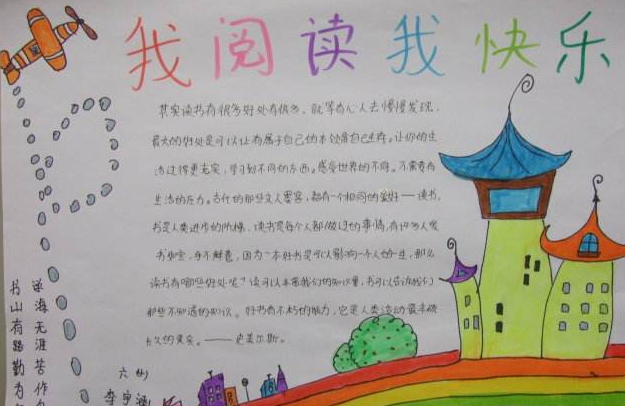 我阅读我快乐
其实读书有很多好处有很多，就等有心人去慢慢发现，
最大的好处是可以让有属于自己的本领靠自己生存。让你的生
活过得更充实，学习到不同的东西。感受世界的不同。不需要有
生活的压力。古代的那些文人墨客，都有一个相同的爱好——读书，
书是人类进步的阶梯，读书是每个人都做过的事情，有许多人爱
书如宝，手不释卷，因为一本好书是可以影响一个人的一生，那么
读书有哪些好处呢？读可以丰富我们的知识量，书可以告诉我们
那些不知道的知识。好书有不朽的能力，它是人类活动最丰硕
长久的果实。——史美尔斯。
书山有路勤为
学海无涯苦作
六
李宇涵